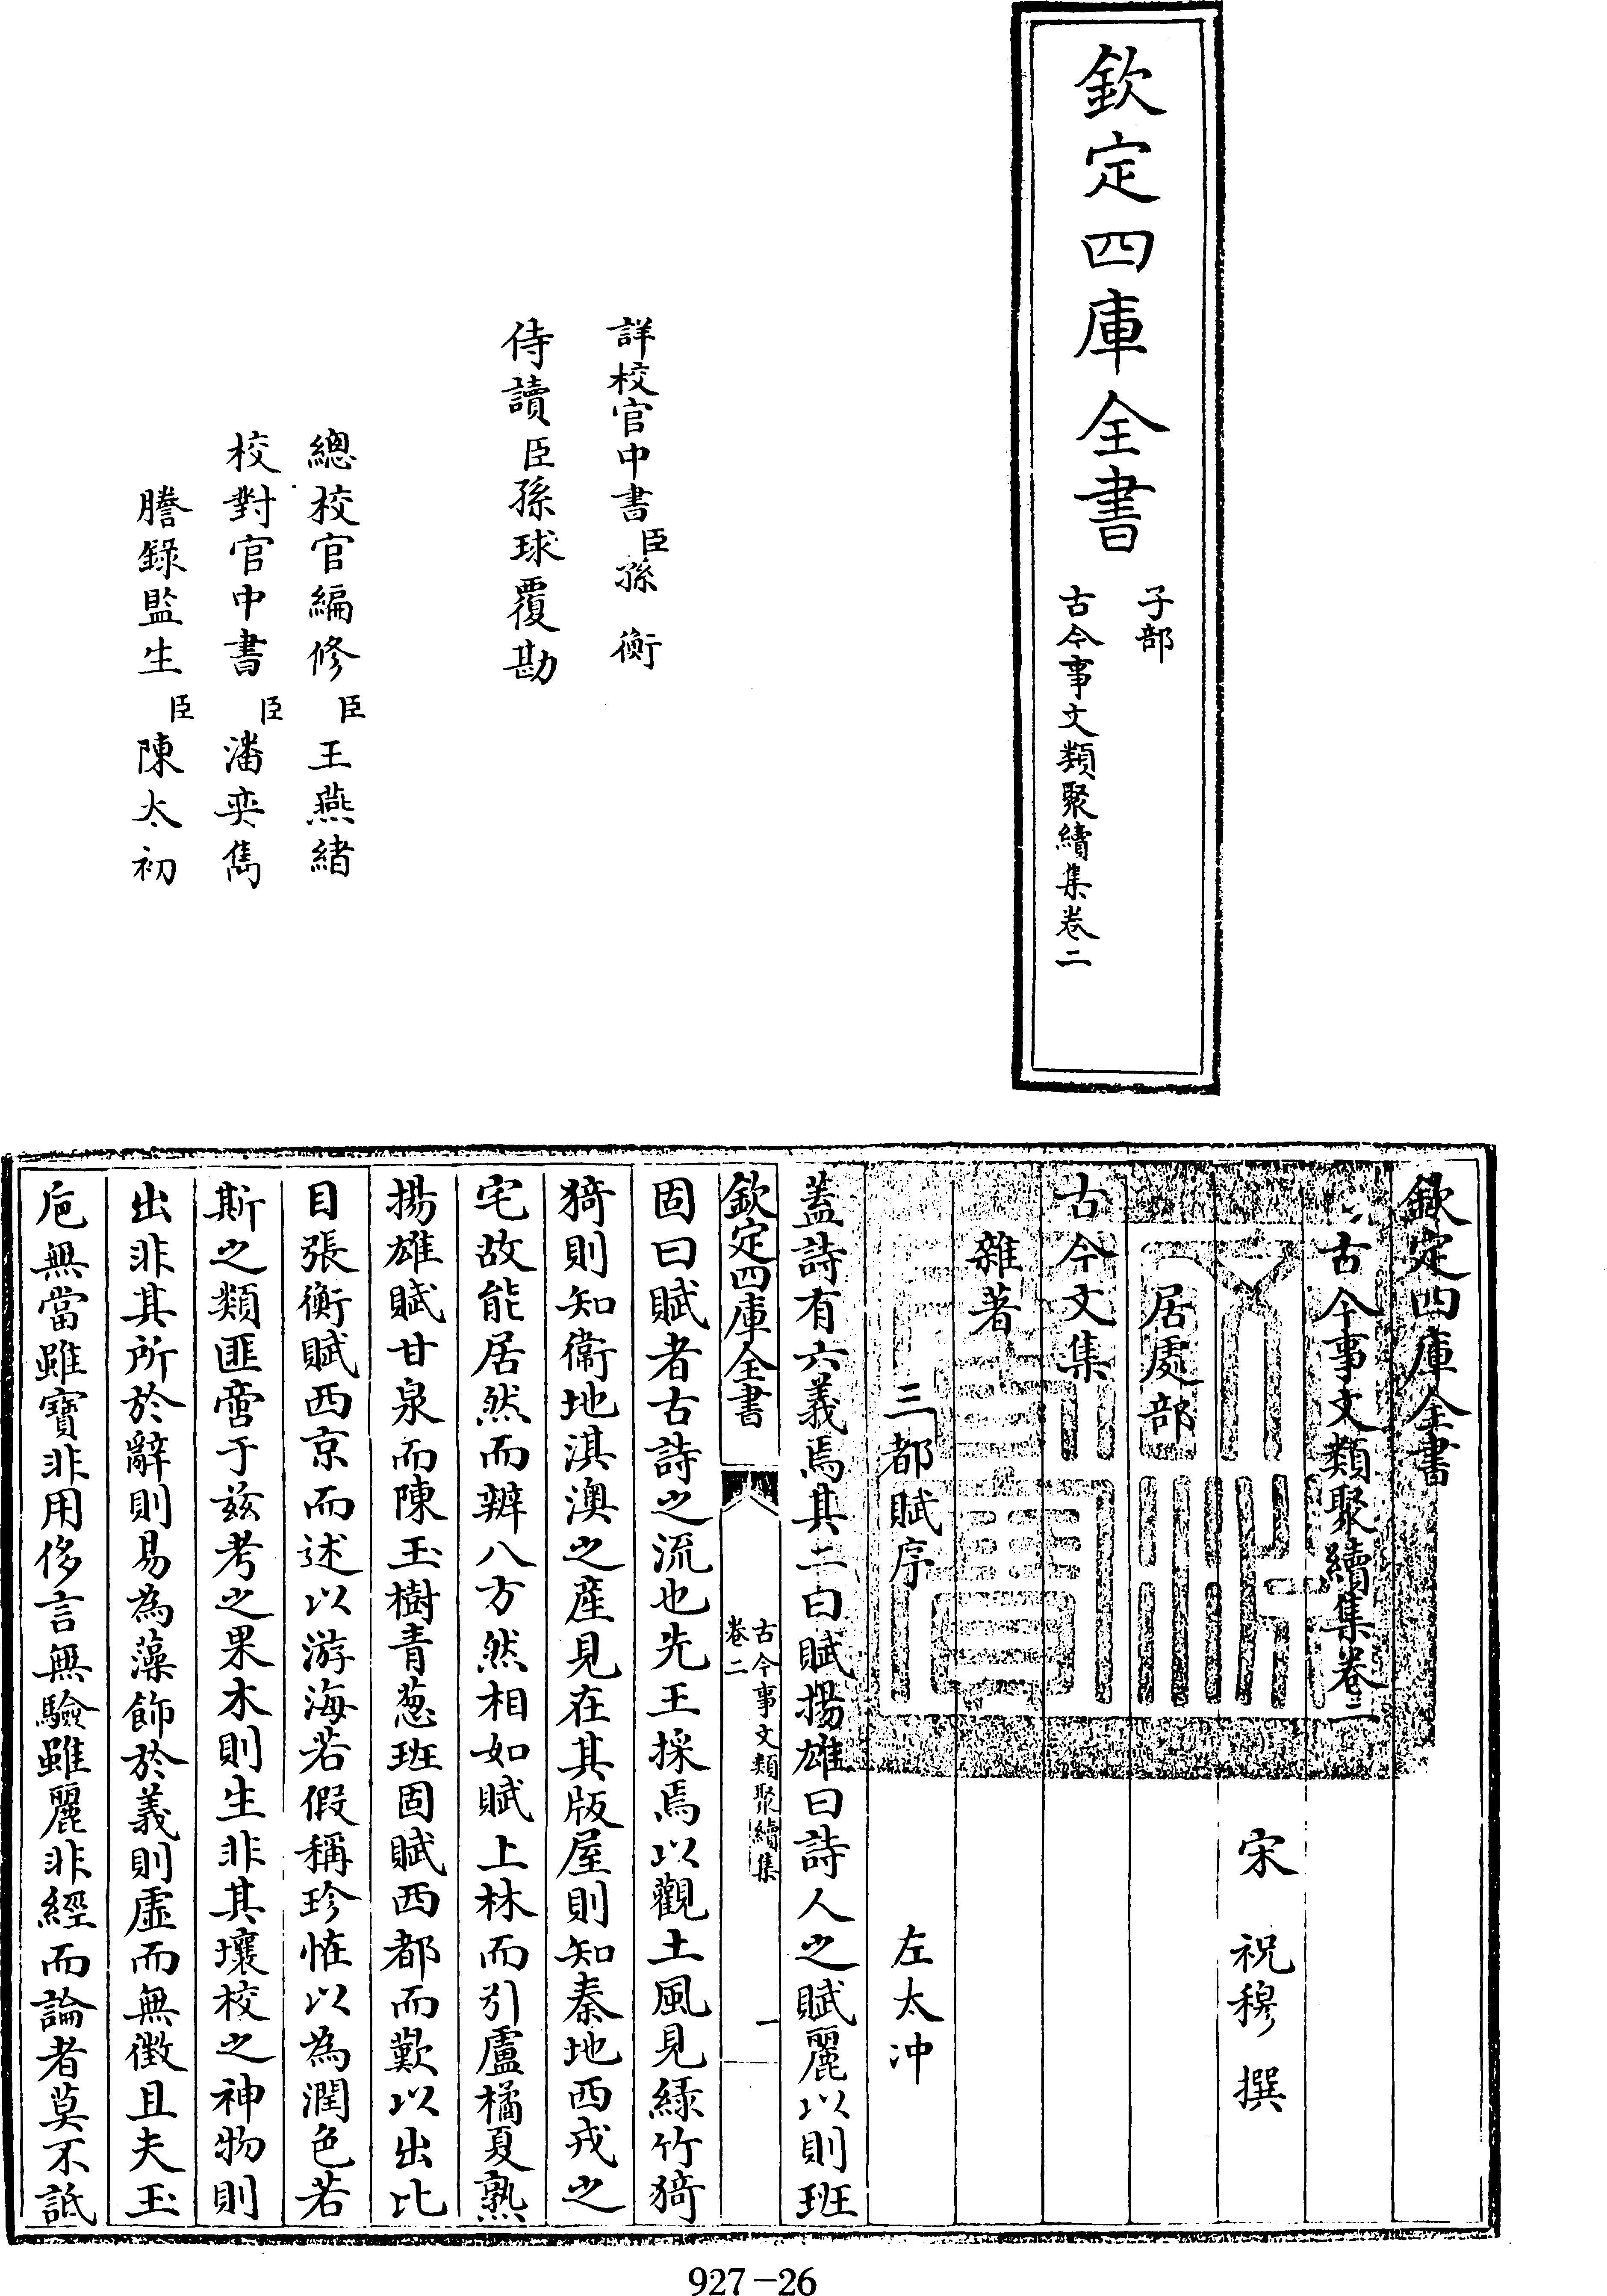 欽定四庫全書
子部
古今事文類聚續集卷二
詳校官中書臣孫衡
侍讀臣孫球覆勘
總校官編修臣王燕緒
校對官中書臣潘奕雋
謄錄監生臣陳太初
欽定四庫全書
古今事文類聚續集卷二
宋 祝穆 撰
居處部
古今文集
雜著
三都賦序 左太冲
蓋詩有六義焉其二曰賦揚雄曰詩人之賦麗以則班
欽定四庫全書
古今事文類聚續集
卷二
一
固曰賦者古詩之流也先王採焉以觀土風見緑竹猗
猗則知衞地淇澳之産見在其版屋則知秦地西戎之
宅故能居然而辨八方然相如賦上林而引盧橘夏熟
揚雄賦甘泉而陳玉樹青葱班固賦西都而歎以出比
目張衡賦西京而述以游海若假稱珍恠以為潤色若
斯之類匪啻于兹考之果木則生非其壤校之神物則
出非其所於辭則易為藻飾於義則虛而無徴且夫玉
巵無當雖寶非用侈言無驗雖麗非經而論者莫不詆
927-26